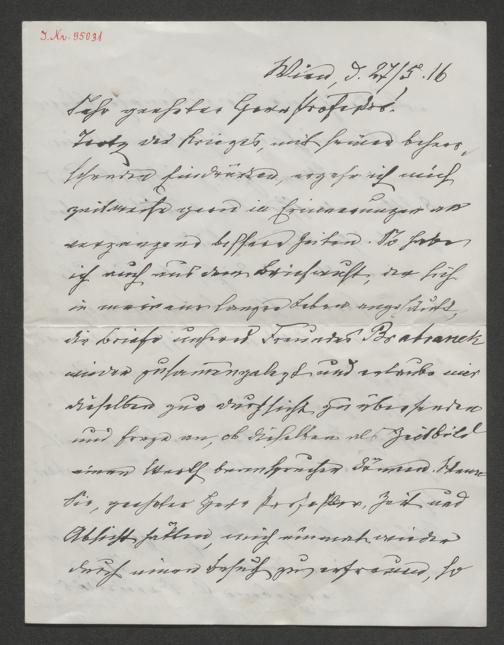 J. Nr. 95031
Wien, d. 27/5. 16
Sehr geehrter Herr Professor!
Trotz des Krieges, mit seinen beherr-
schenden Eindrücken, ergehe ich mich
zeitweise gern in Erinnerungen an
vergangene bessere Zeiten. So habe
ich auch aus dem Briefwust, der sich
in meinem langen Leben angehäuft,
die Briefe unseres Freundes Bratranek
wieder zusammengelegt und erlaube mir
dieselben zur Durchsicht zu übersenden
und frage an, ob dieselben als Zeitbild
einen Werth beanspruchen können. Wenn
Sie, geehrter Herr Professor, Zeit und
Absicht hätten, mich einmal wieder
durch einen Besuch zu erfreuen, so